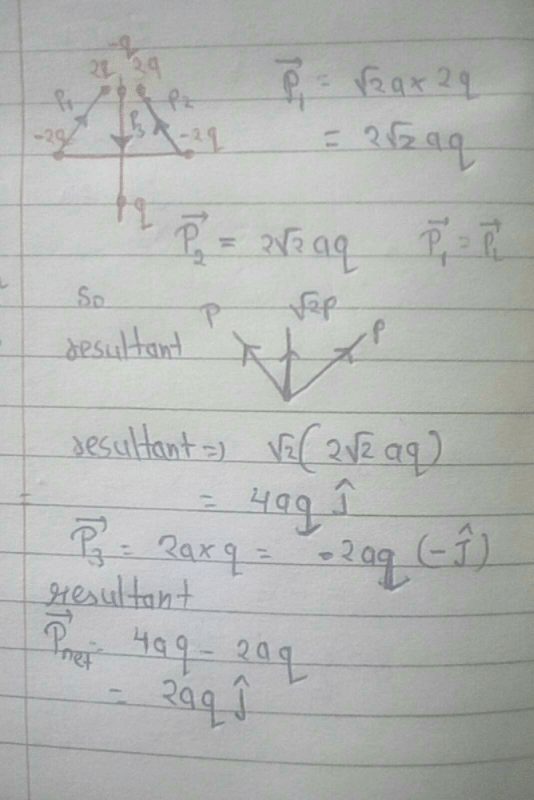 -q
2q 2q
P₁ P₂
P₃
-2q -2q
q
P⃗₁ = √2a × 2q
= 2√2 aq
P⃗₂ = 2√2 aq P⃗₁ = P⃗₂
So
resultant
P √2P P
resultant ⇒ √2(2√2 aq)
= 4aq ĵ
P⃗₃ = 2a×q = 2aq (-ĵ)
resultant
P⃗net = 4aq - 2aq
= 2aq ĵ